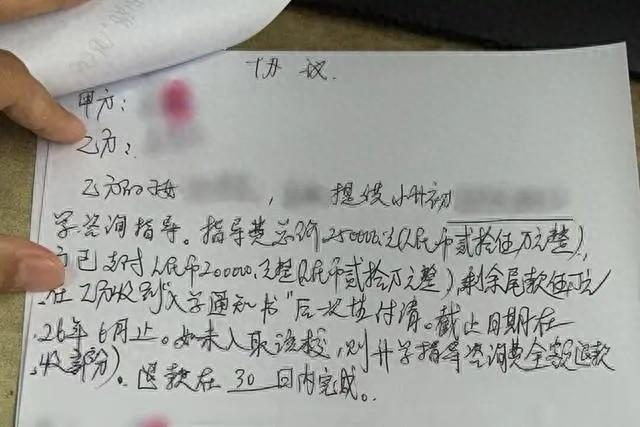 协议
甲方：
乙方：
乙方的 ， 提供小升初
学咨询指导。指导费总额250000元(人民币贰拾伍万元整),
方已支付人民币200000元整(人民币贰拾万元整),剩余尾款伍万元
在乙方收到“入学通知书”后一次性付清。截止日期在
26年6月止。如未入取该校,则升学指导咨询费全额退款
收部分)。退款在30日内完成。